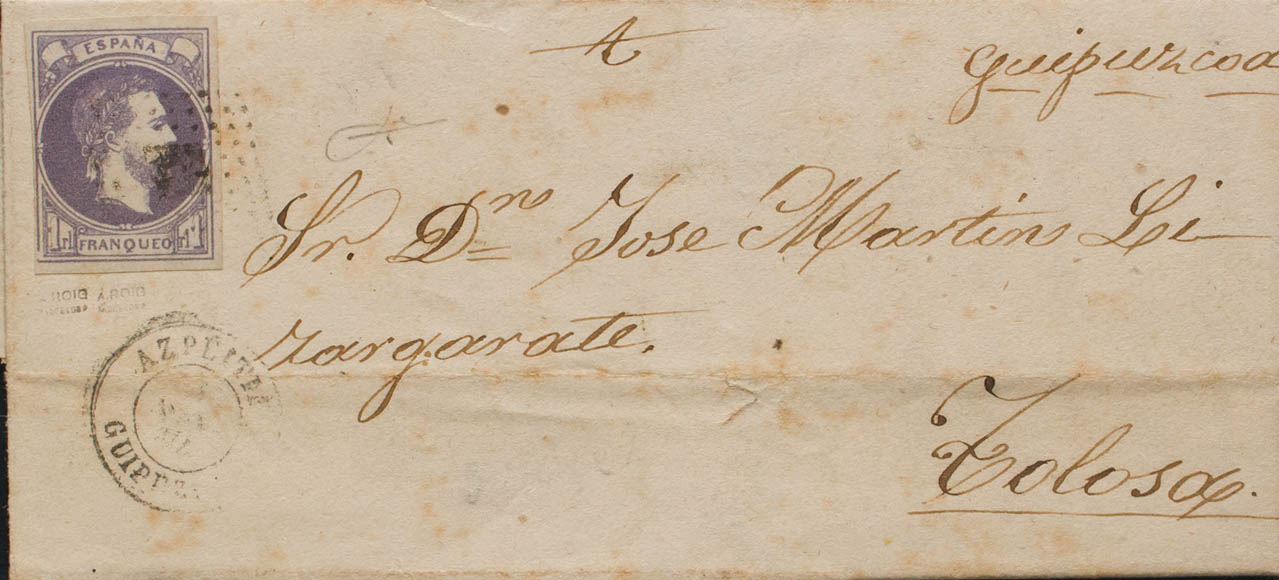 ESPAÑA
1 rl FRANQUEO rl 1
A
Guipuzcoa
Sr. Dn José Martin Li-
zargarate.
Tolosa.
A. ROIG A. ROIG
AZPEITIA
GUIPUZ